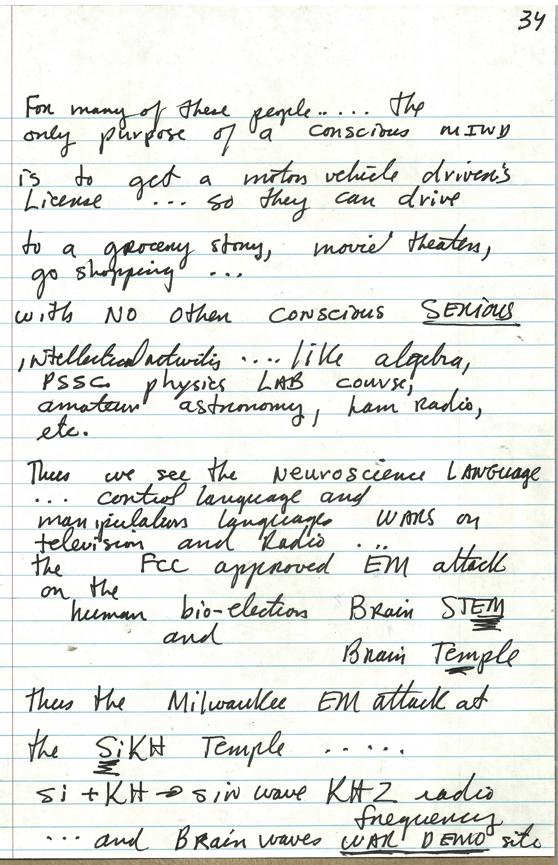 34
For many of these people..... the
only purpose of a conscious MIND
is to get a motor vehicle driver's
License ... so they can drive
to a grocery story, movie theaters,
go shopping ...
with NO other conscious SERIOUS
, intellectual activitis .... like algebra,
PSSC physics LAB course,
amateur astronomy, ham radio,
etc.
Thus we see the Neuroscience LANGUAGE
... control language and
manipulation languages WARS on
television and Radio ...
the FCC approved EM attack
on the
human bio-electron Brain STEM
and
Brain Temple
thus the Milwaukee EM attack at
the SiKH Temple ......
si + KH → sin wave KHZ radio
frequency
... and Brain waves WAR DEMO site